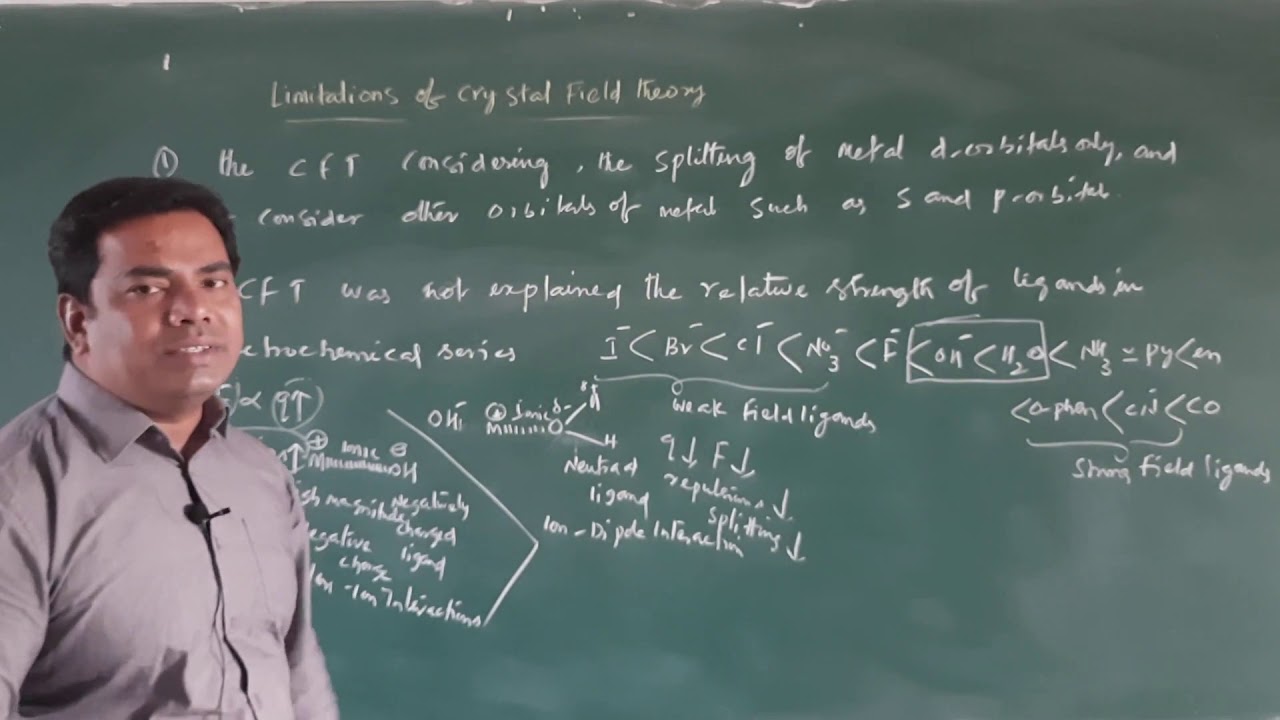 Limitations of Crystal Field theory
① the CFT Considering, the splitting of metal d-orbitals only, and
consider other orbitals of metal such as s and p-orbital.
CFT was not explained the relative strength of ligands in
trochemical series
I⁻ < Br⁻ < Cl⁻ < NO₃⁻ < F⁻ < OH⁻ < H₂O < NH₃ ≃ py < en
< o-phen < CN⁻ < CO
weak field ligands
strong field ligands
∝ q↑
⊕ ionic ⊖
M OH
Negatively
charged
ligand
magnitude
negative
charge
Ion-Ion Interactions
OH⁻
⊕ ionic δ-
M O H
H
Neutral
ligand
Ion-Dipole Interaction
q↓ F↓
repulsions ↓
splitting ↓